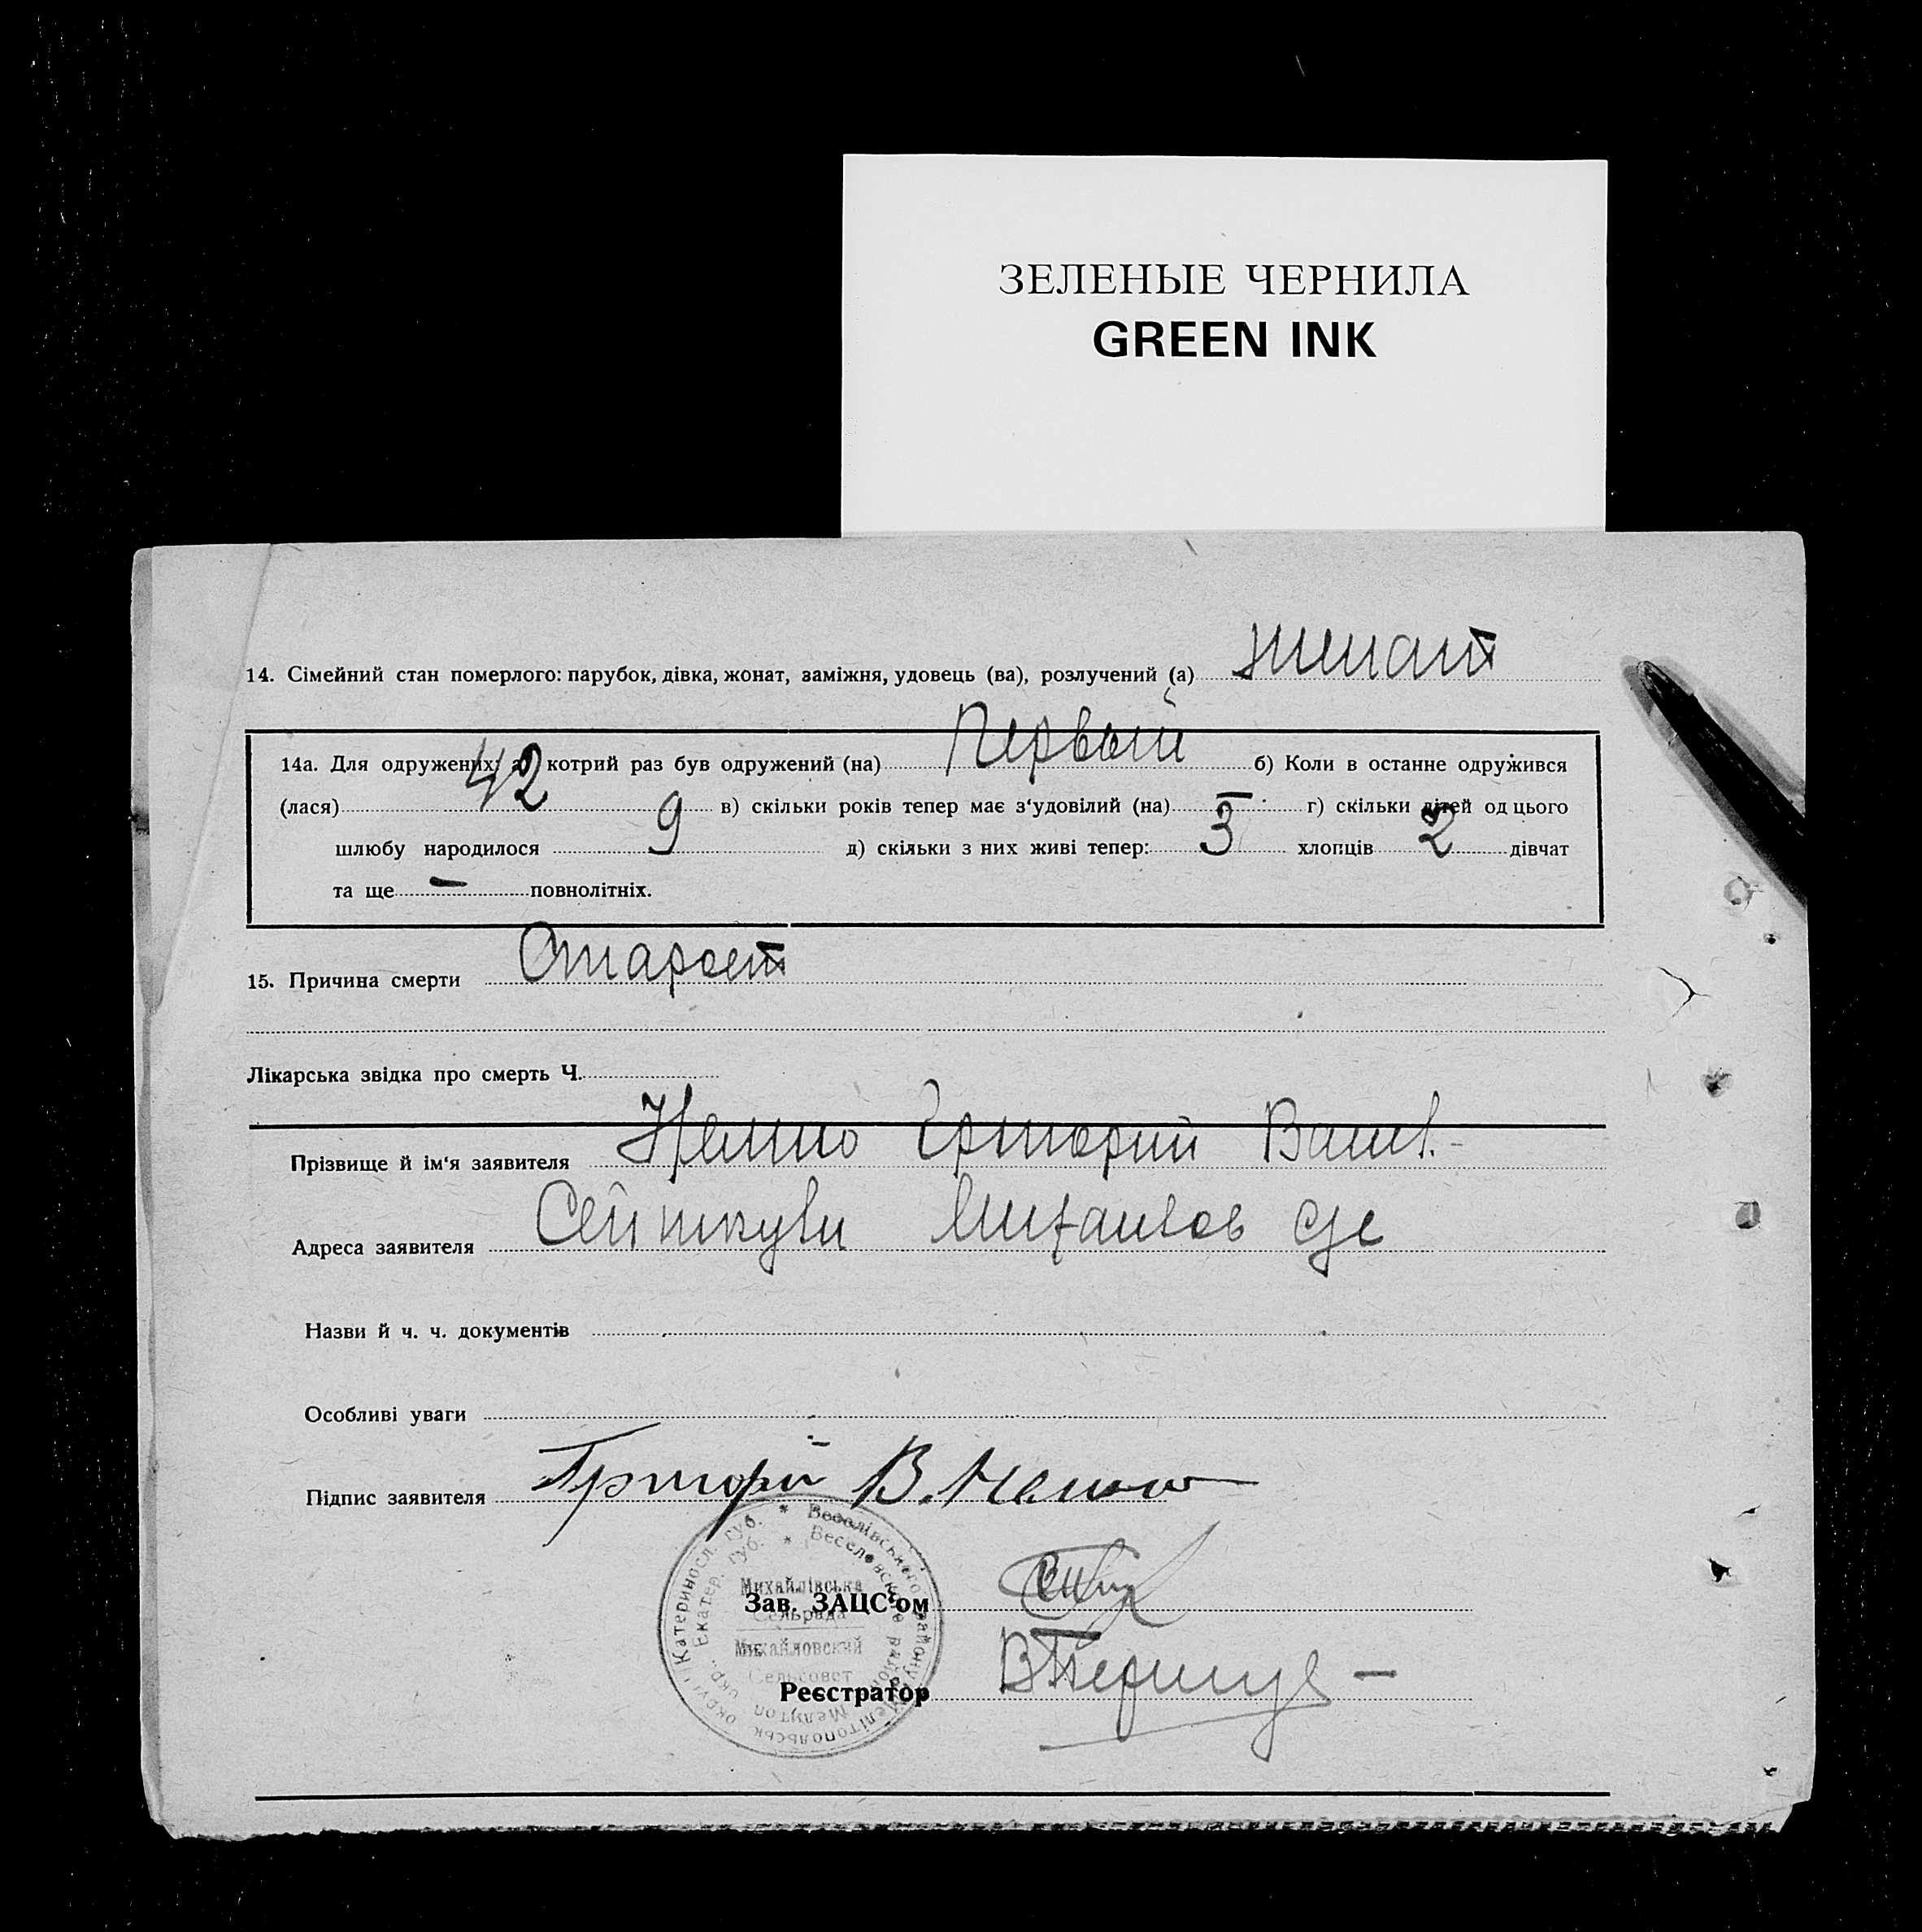 ЗЕЛЕНЫЕ ЧЕРНИЛА
GREEN INK
14. Сімейний стан померлого: парубок, дівка, жонат, заміжня, удовець (ва), розлучений (а) женат
14а. Для одружених: а) котрий раз був одружений (на) Первый б) Коли в останне одружився
(лася) 42 в) скільки років тепер має з'удовілий (на) – г) скільки дітей од цього
шлюбу народилося 9 д) скільки з них живі тепер: 3 хлопців 2 дівчат
та ще – повнолітніх.
15. Причина смерти Старост
Лікарська звідка про смерть Ч.
Прізвище й ім'я заявителя Григорий Васил.
Адреса заявителя Михайлов с/с
Назви й ч. ч. документів
Особливі уваги
Підпис заявителя Григорій В.
Катериносл. губ. * Веселівського району Мелітопольськ. округи
Екатер. губ. * Веселовского района Мелитоп. окр.
Михайлівська
Сельрада
Михайловский
Сельсовет
Зав. ЗАЦС'ом
Реєстратор